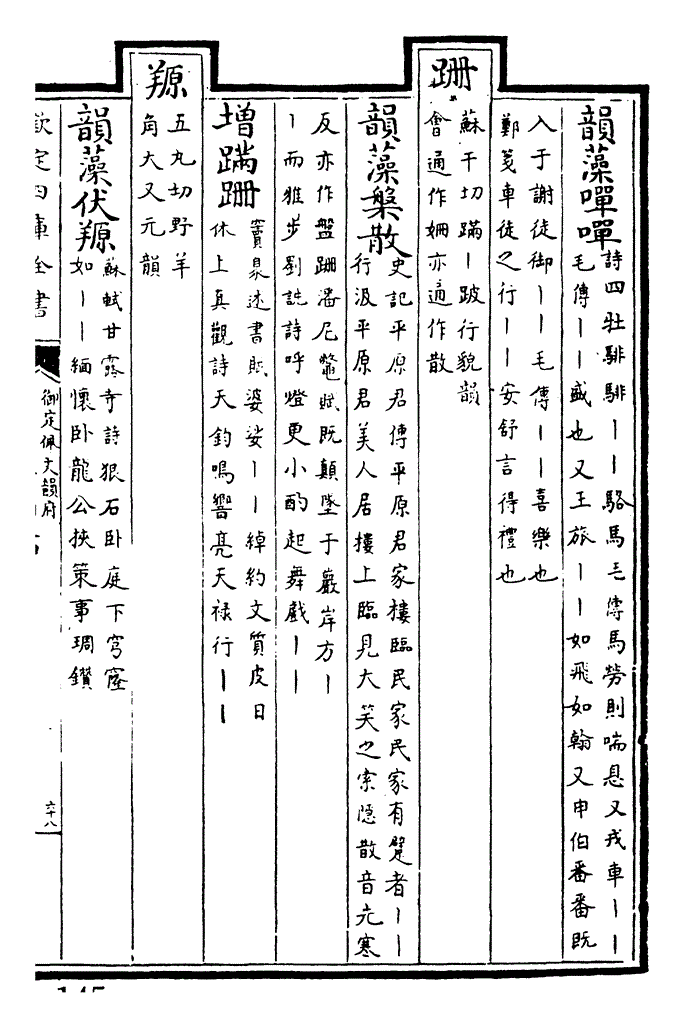 韻藻嘽嘽
詩四牡騑騑丨丨駱馬毛傳馬勞則喘息又戎車丨丨
毛傳丨丨盛也又王旅丨丨如飛如翰又申伯番番既
入于謝徒御丨丨毛傳丨丨喜樂也
鄭箋車徒之行丨丨安舒言得禮也
跚
蘇干切蹣丨跛行貌韻
會通作姍亦通作散
韻藻槃散
史記平原君傳平原君家樓臨民家民家有躄者丨丨
行汲平原君美人居樓上臨見大笑之索隱散音先寒
反亦作盤跚潘尼鼈賦既顛墜于巖岸方丨
丨而雅步劉詵詩呼燈更小酌起舞戲丨丨
增蹣跚
竇臮述書賦婆娑丨丨綽約文質皮日
休上真觀詩天鈞鳴響亮天祿行丨丨
羱
五丸切野羊
角大又元韻
韻藻伏羱
蘇軾甘露寺詩狠石卧庭下穹窿
如丨丨緬懷卧龍公挾策事琱鑽
欽定四庫全書
御定佩文韻府
六十八